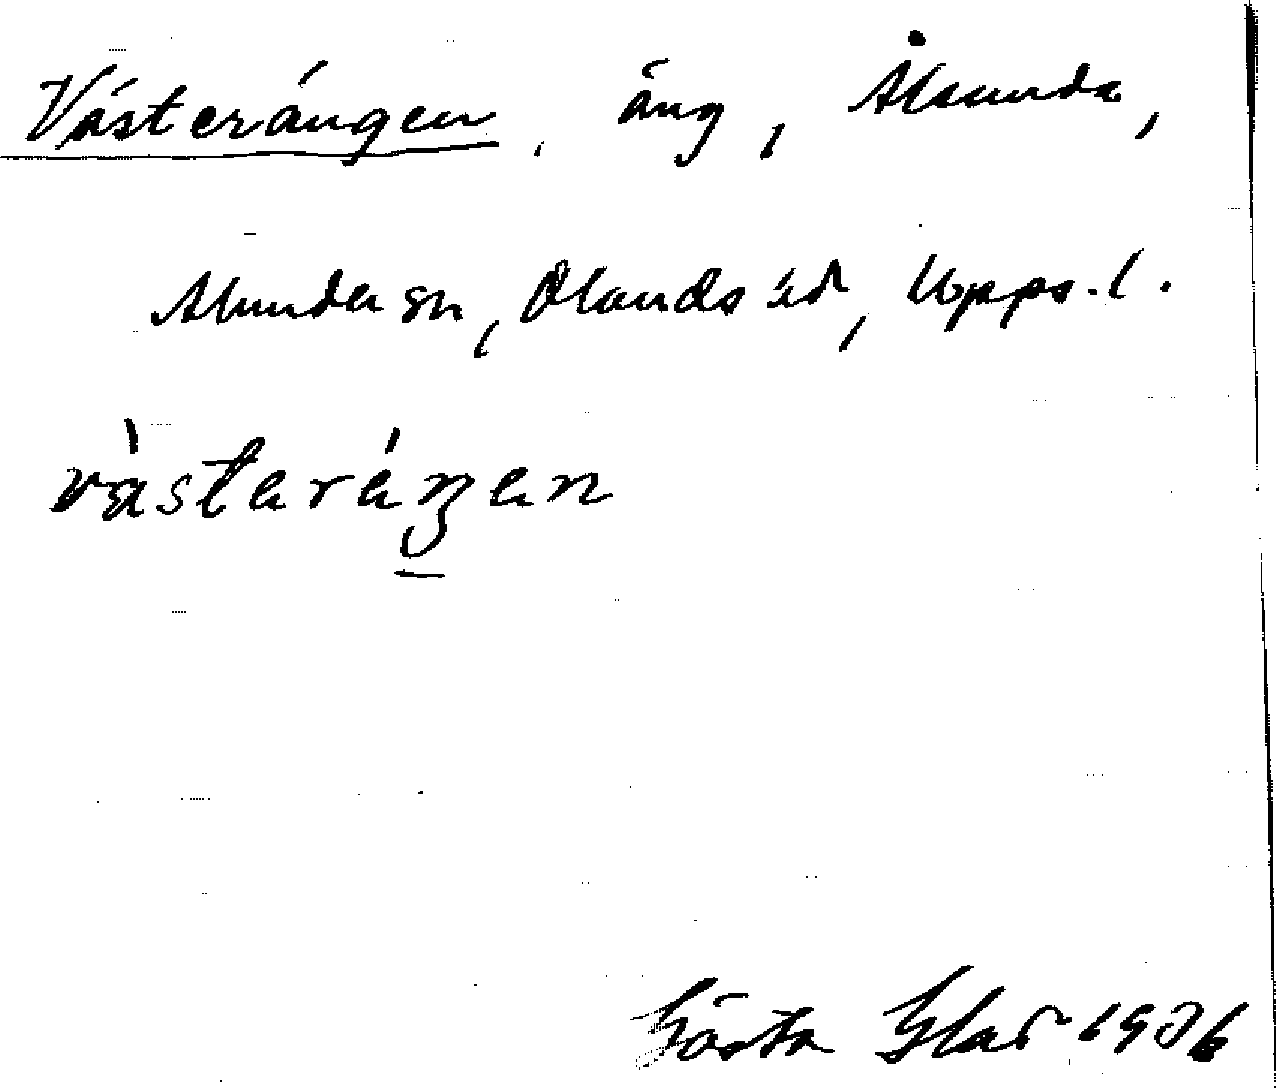 Västerängen, äng, Ålsunda,
Alunda sn, Olands hd, Upps. l.
vàsteráŋen
Gösta